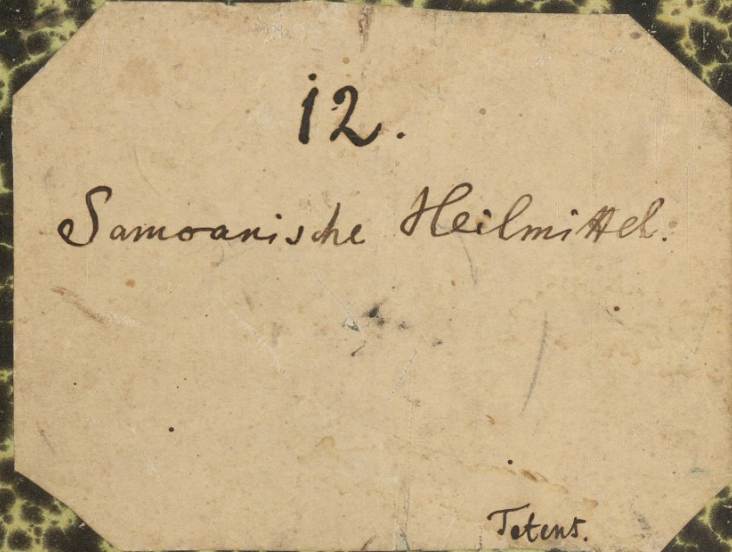 12.
Samoanische Heilmittel.
Tetens.